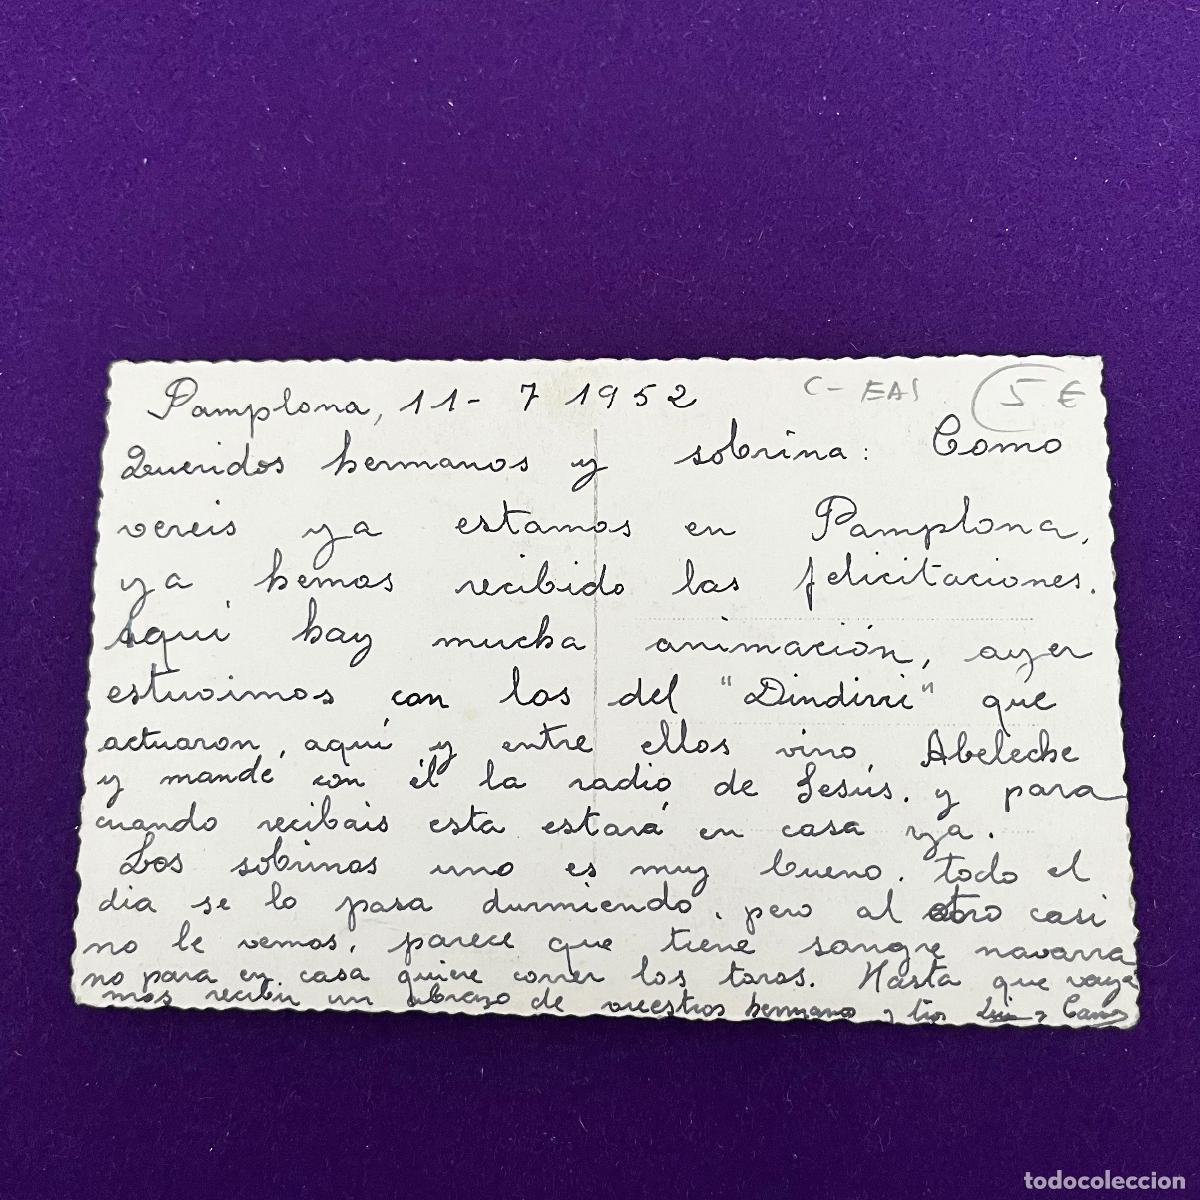 Pamplona, 11- 7 1952
C- EAS 5 €
Queridos hermanos y sobrina: Como
vereis ya estamos en Pamplona,
ya hemos recibido las felicitaciones.
Aqui hay mucha animación, ayer
estuvimos con los del "Dindirri" que
actuaron, aquí y entre ellos vino, Abeleche
y mandé con él la radio de Jesús. y para
cuando recibais esta estará en casa ya.
Los sobrinos uno es muy bueno. todo el
dia se lo pasa durmiendo. pero al otro casi
no le vemos, parece que tiene sangre navarra
no para en casa quiere correr los toros. Hasta que vaya
mos recibir un abrazo de vuestros hermanos y tios
todocoleccion